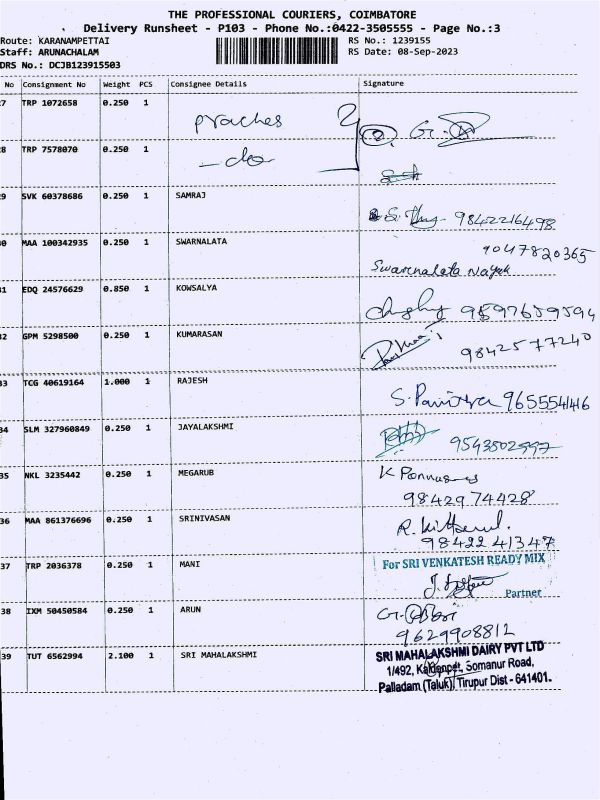 THE PROFESSIONAL COURIERS, COIMBATORE
Delivery Runsheet - P103 - Phone No.:0422-3505555 - Page No.:3
Route: KARANAMPETTAI
RS No.: 1239155
Staff: ARUNACHALAM
RS Date: 08-Sep-2023
DRS No.: DCJB123915503
No Consignment No Weight PCS Consignee Details Signature
7 TRP 1072658 0.250 1
praches
G.
8 TRP 7578070 0.250 1
-do
9 SVK 60378686 0.250 1 SAMRAJ
9842216498
0 MAA 100342935 0.250 1 SWARNALATA
9047820365
Swarnalata Nayak
31 EDQ 24576629 0.850 1 KOWSALYA
9597659594
32 GPM 5298500 0.250 1 KUMARASAN
9842577240
33 TCG 40619164 1.000 1 RAJESH
S. 9655541416
34 SLM 327960849 0.250 1 JAYALAKSHMI
9543502997
35 NKL 3235442 0.250 1 MEGARUB
K
9842974428
36 MAA 861376696 0.250 1 SRINIVASAN
R.
9842241347
37 TRP 2036378 0.250 1 MANI
For SRI VENKATESH READY MIX
J.
Partner
38 IXM 50450584 0.250 1 ARUN
G.
9629908812
39 TUT 6562994 2.100 1 SRI MAHALAKSHMI
SRI MAHALAKSHMI DAIRY PVT LTD
1/492, Somanur Road,
Palladam (Taluk) Tirupur Dist - 641401.